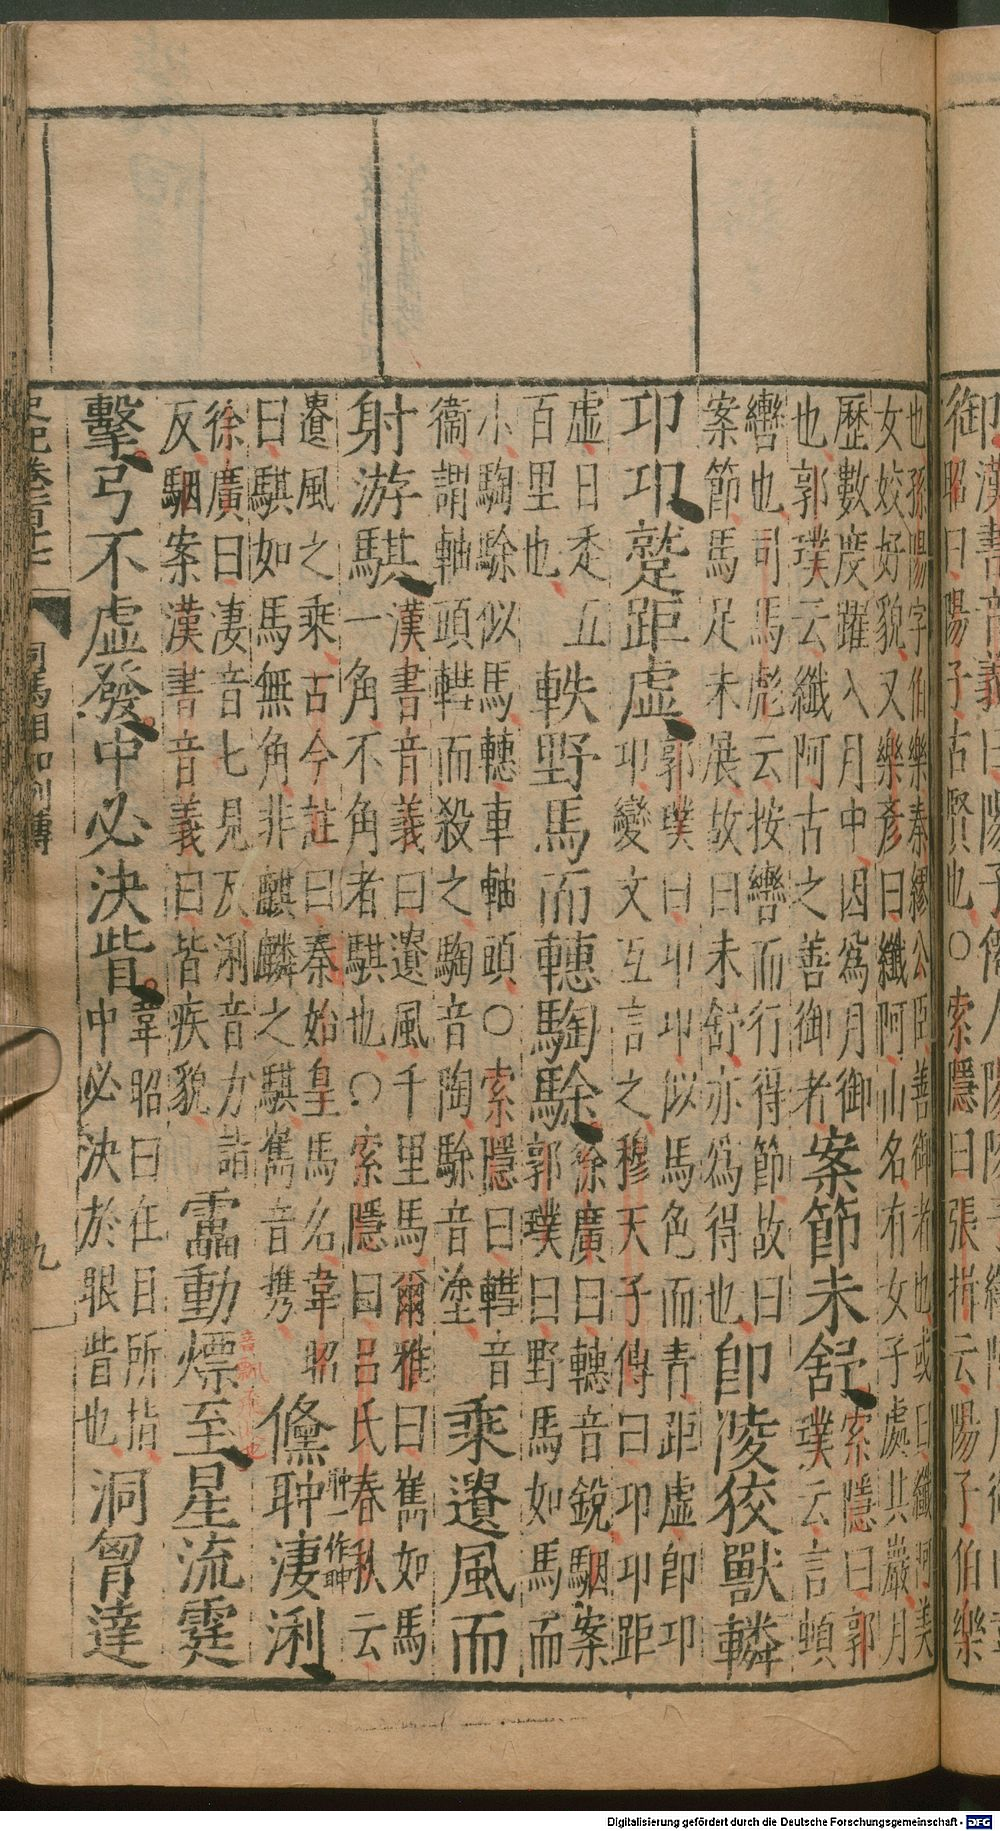 御昭曰陽子古賢也○索隱曰張揖云陽子伯樂
也孫陽字伯樂秦繆公臣善御者也或曰纖阿美
女姣好貌又樂彥曰纖阿山名有女子處其巖月
歷數度躍入月中因為月御
也郭璞云纖阿古之善御者
案節未舒
索隱曰郭
璞云言頓
轡也司馬彪云按轡而行得節故曰
案節馬足未展故曰未舒亦為得也
卽陵狡獸轔
卭卭蹵距虛
郭璞曰卭卭似馬色而青距虛卽卭
卭變文互言之穆天子傳曰卭卭距
虛日走五
百里也
軼野馬而轊騊駼
徐廣曰轊音銳駰案
郭璞曰野馬如馬而
小騊駼似馬轊車軸頭○索隱曰轊音
衞謂軸頭轊而殺之騊音陶駼音塗
乘遺風而
射游騏
漢書音義曰遺風千里馬爾雅曰巂如馬
一角不角者騏也○索隱曰呂氏春秋云
遺風之乘古今註曰秦始皇馬名韋昭
曰騏如馬無角非麒麟之騏巂音攜
儵胂淒浰
胂一作眒
徐廣曰淒音七見反浰音力詣
反駰案漢書音義曰皆疾貌
靁動熛至星流霆
音飄
擊弓不虛發中必決眥
韋昭曰在目所指
中必決於眼眥也
洞胷達
史記卷一百十七
司馬相如列傳
九
Digitalisierung gefördert durch die Deutsche Forschungsgemeinschaft - DFG